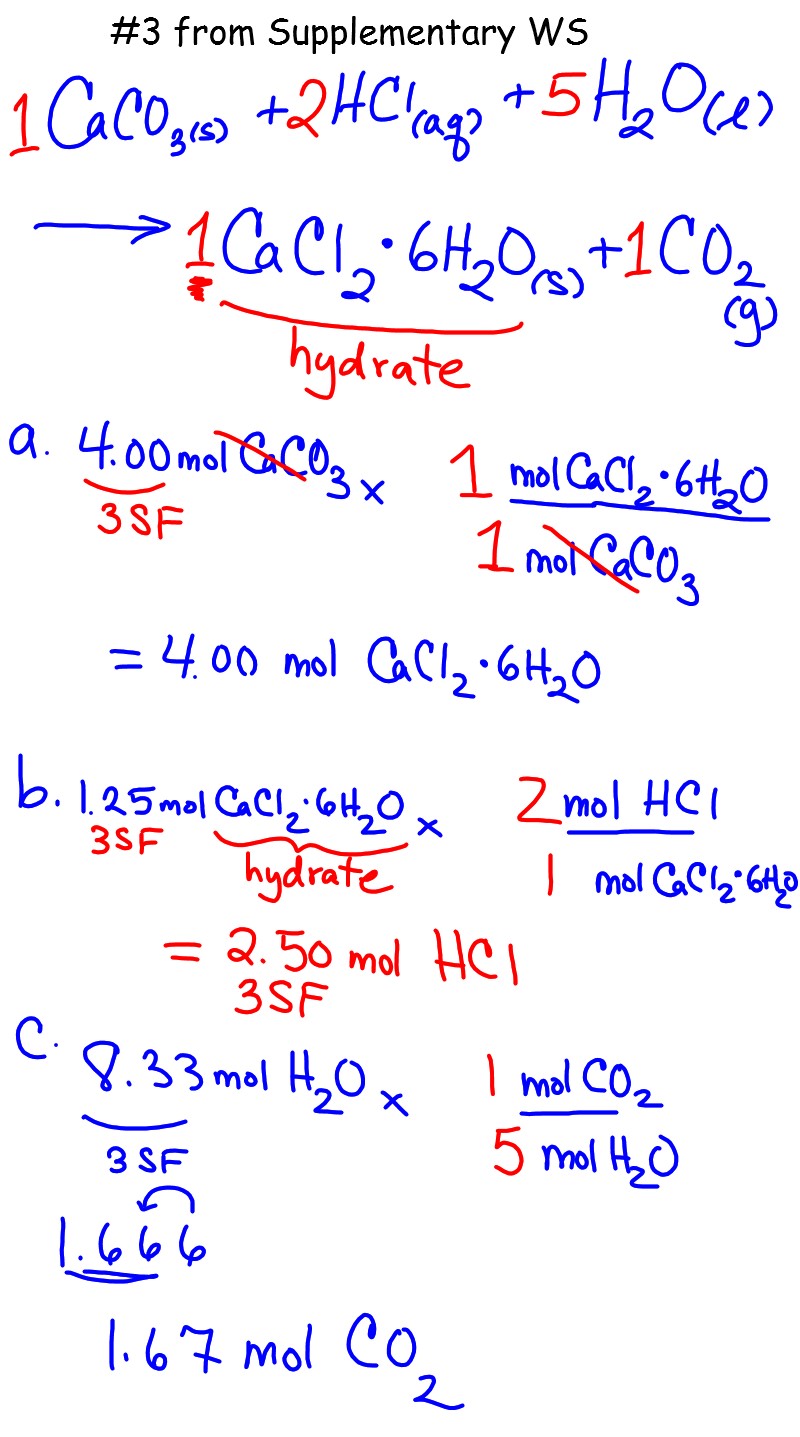 #3 from Supplementary WS
1CaCO₃(s) + 2HCl(aq) + 5H₂O(l)
→ 1CaCl₂·6H₂O(s) + 1CO₂(g)
hydrate
a. 4.00 mol CaCO₃ x 1 mol CaCl₂·6H₂O
3SF 1 mol CaCO₃
= 4.00 mol CaCl₂·6H₂O
b. 1.25 mol CaCl₂·6H₂O x 2 mol HCl
3SF hydrate 1 mol CaCl₂·6H₂O
= 2.50 mol HCl
3SF
c. 8.33 mol H₂O x 1 mol CO₂
3SF 5 mol H₂O
1.666
1.67 mol CO₂